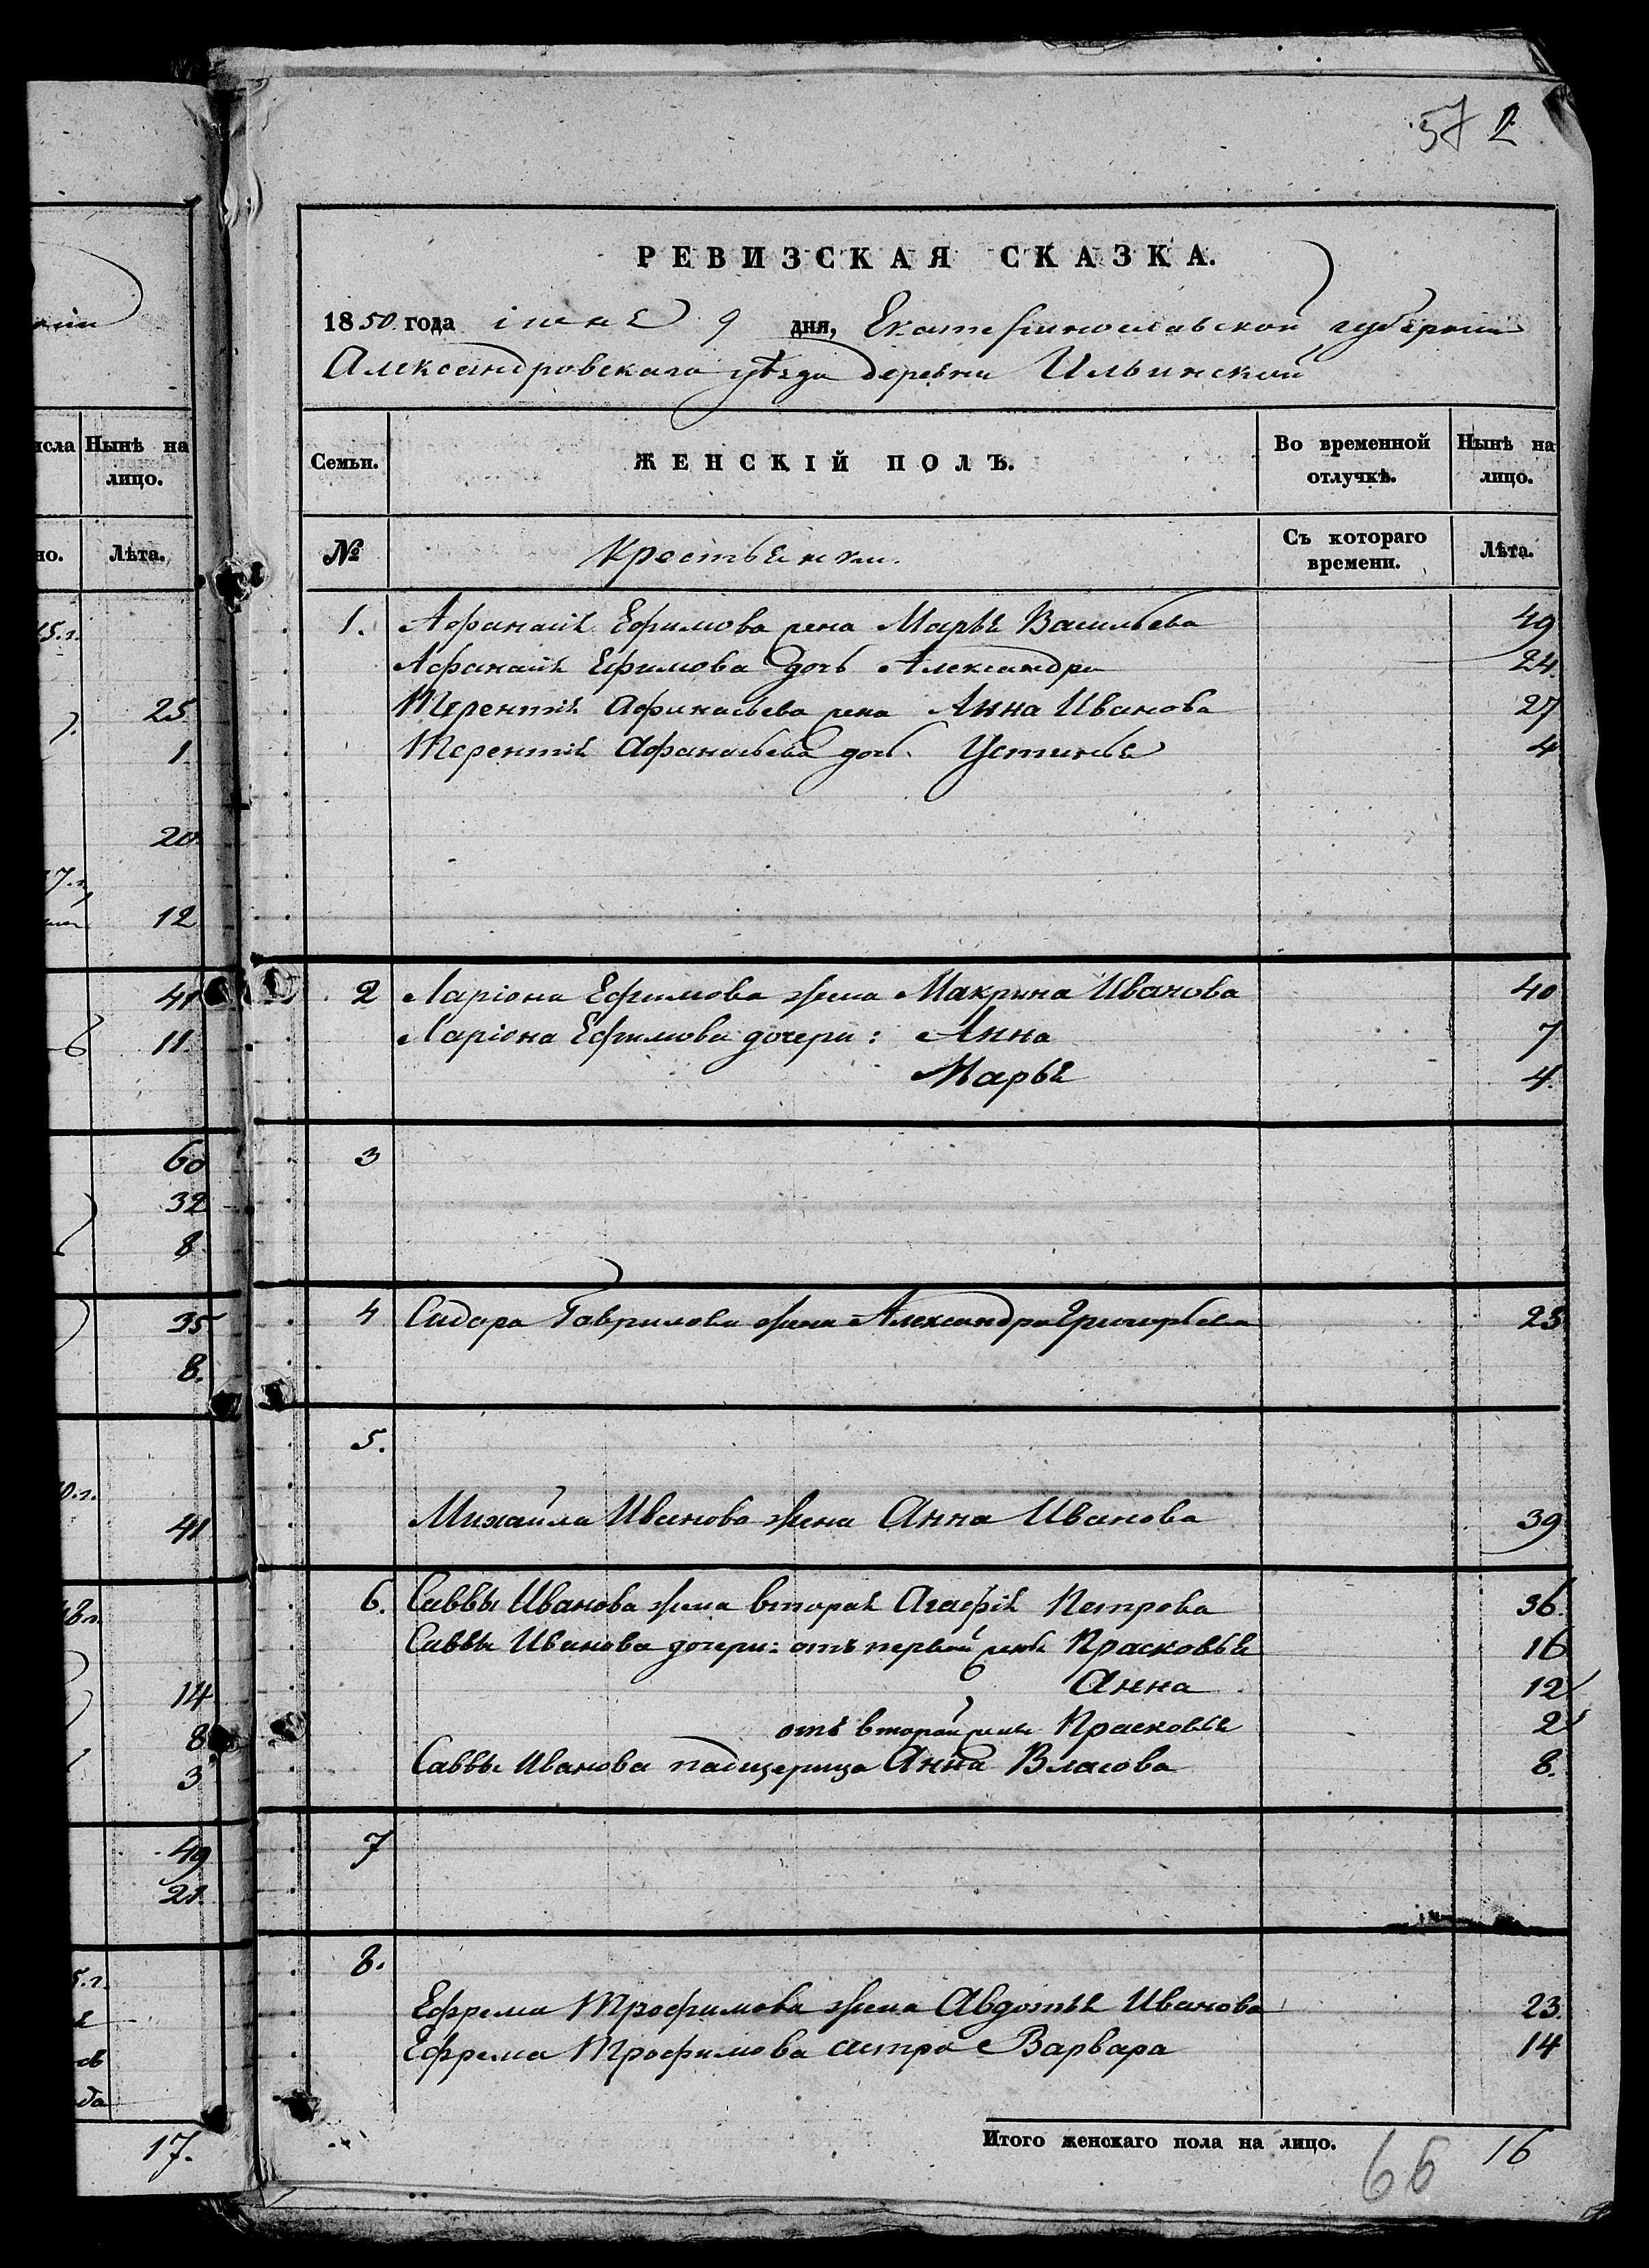 57 2
РЕВИЗСКАЯ СКАЗКА.
1850 года іюня 9 дня, Екатеринославской губерніи
Александровскаго уѣзда деревни Ильинской
исла Нынѣ на лицо.
но. Лѣта.
Семьи. ЖЕНСКІЙ ПОЛЪ. Во временной отлучкѣ. Нынѣ на лицо.
№ Крестьянки. Съ котораго времени. Лѣта.
1. Афанасія Ефимова жена Марья Васильева 49
Афанасія Ефимова дочь Александра 24.
Терентія Афанасьева жена Анна Иванова 27
Терентія Афанасьева дочь Устинья 4
2 Ларіона Ефимова жена Макрина Иванова 40
Ларіона Ефимова дочери: Анна 7
Марья 4.
3
4 Сидора Гаврилова жена Александра Григорьева 23
5.
Михайла Иванова жена Анна Иванова 39
6. Саввы Иванова жена вторая Агафія Петрова 36.
Саввы Иванова дочери: отъ первой жены Прасковья 16
Анна 12
отъ второй жены Прасковья 2
Саввы Иванова падщерица Анна Власова 8.
7
8.
Ефрема Трофимова жена Авдотья Иванова 23.
Ефрема Трофимова сестра Варвара 14
Итого женскаго пола на лицо. 16
66
25
1.
20.
12
41
11.
60
32
8
35
8.
41
14
8
3
49
21.
17.